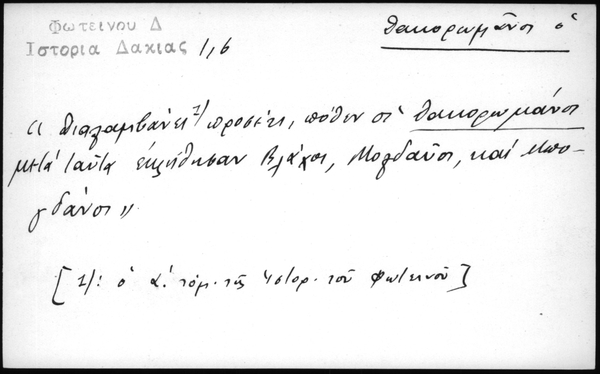 Φωτεινου Δ
Ιστορια Δακιας 1,6
Δακορωμᾶνοι ὁ
« διαλαμβάνει 1/ προσέτι, πόθεν οἱ Δακορωμάνοι
μετὰ ταῦτα ἐκλήθησαν Βλάχοι, Μολδαῦοι, καὶ Μπο-
γδάνοι »
[1/: ὁ α. τόμ. τῆς Ἱστορ. τοῦ Φωτεινοῦ]